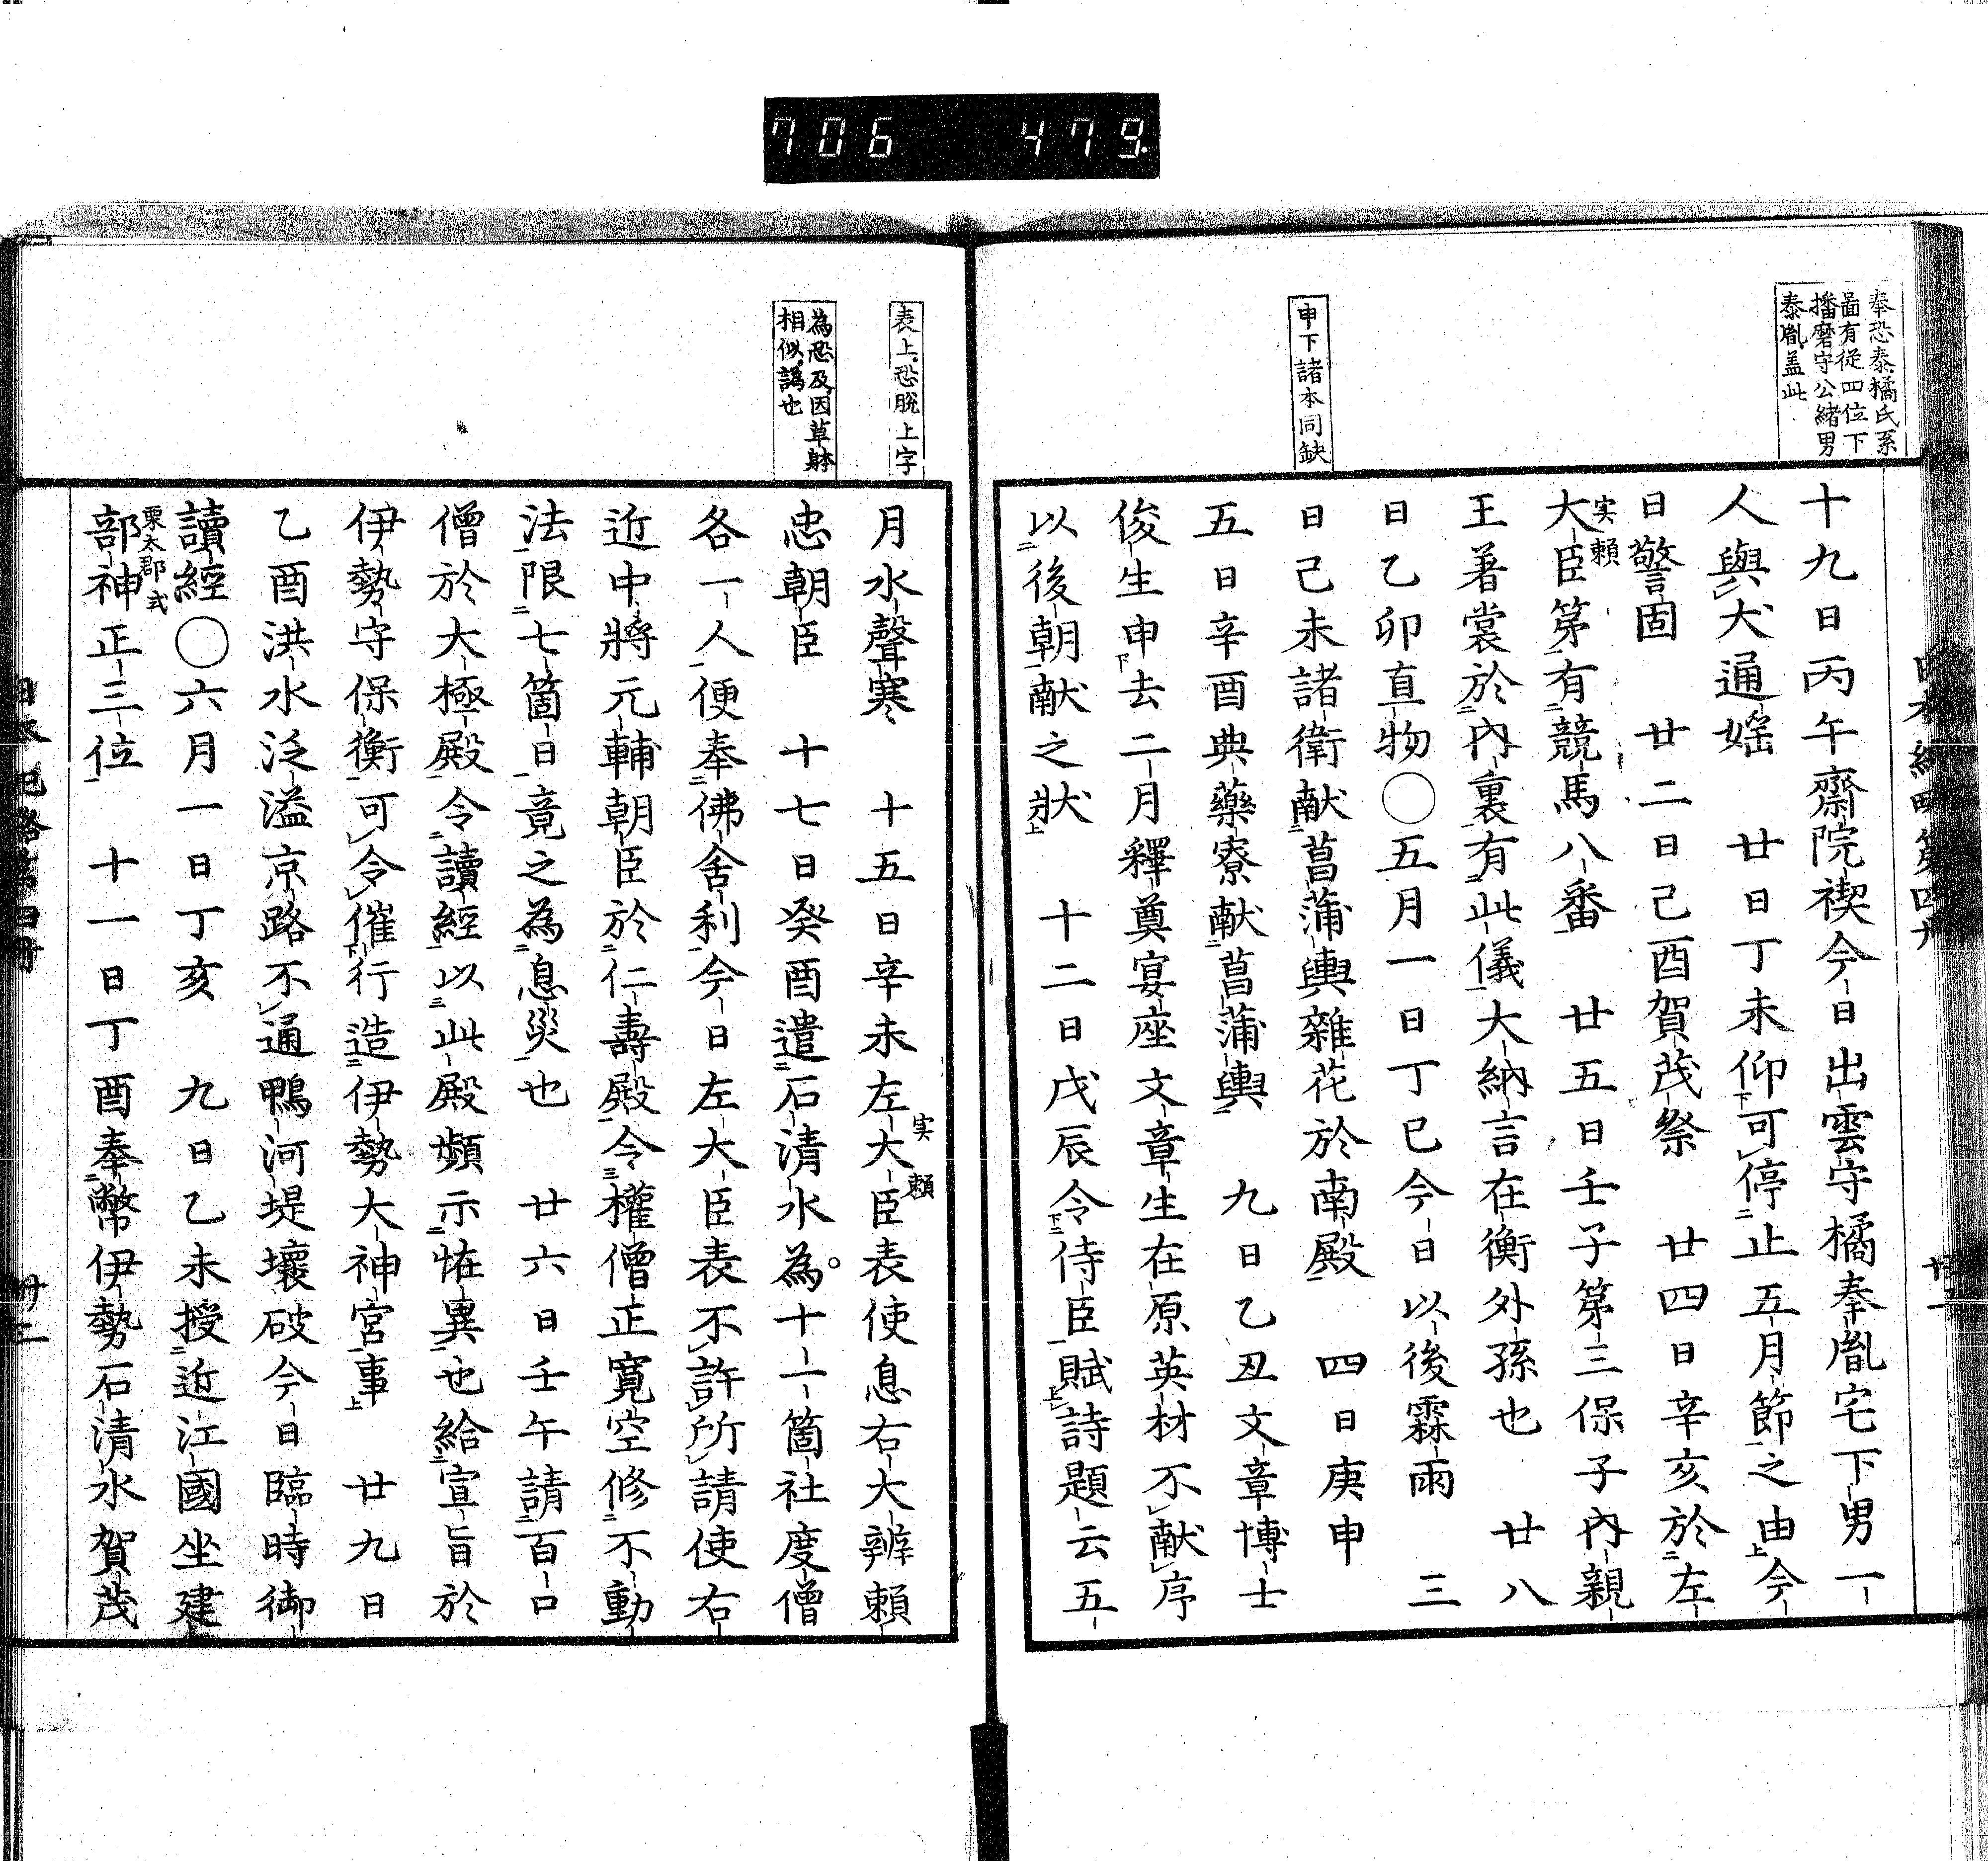 706 479
奉恐泰橘氏系
啚有從四位下
播磨守公緒男
泰胤盖此
申下諸本同缺
十九日丙午齋院禊今日出雲守橘奉胤宅下男一
人與犬通婬 廿日丁未仰可停止五月節之由今
日警固 廿二日己酉賀茂祭 廿四日辛亥於左
大臣実頼第有競馬八番 廿五日壬子第三保子內親
王著裳於內裏有此儀大納言在衡外孫也 廿八
日乙卯直物〇五月一日丁巳今日以後霖雨 三
日己未諸衛献菖蒲輿雜花於南殿 四日庚申
五日辛酉典藥寮献菖蒲輿 九日乙丑文章博士
俊生申去二月釋奠宴座文章生在原英材不献序
以後朝献之狀 十二日戊辰令侍臣賦詩題云五
表上恐脫上字
為恐及因草躰
相似譌也
月水聲寒 十五日辛未左大臣実頼表使息右大辨頼
忠朝臣 十七日癸酉遣石清水為十一箇社度僧
各一人便奉佛舍利今日左大臣表不許所請使右
近中將元輔朝臣於仁壽殿令權僧正寬空修不動
法限七箇日竟之為息災也 廿六日壬午請百口
僧於大極殿令讀經以此殿頻示恠異也給宣旨於
伊勢守保衡可令催行造伊勢大神宮事 廿九日
乙酉洪水泛溢京路不通鴨河堤壞破今日臨時御
讀經〇六月一日丁亥 九日乙未授近江國坐建
部神栗太郡式正三位 十一日丁酉奉幣伊勢石清水賀茂